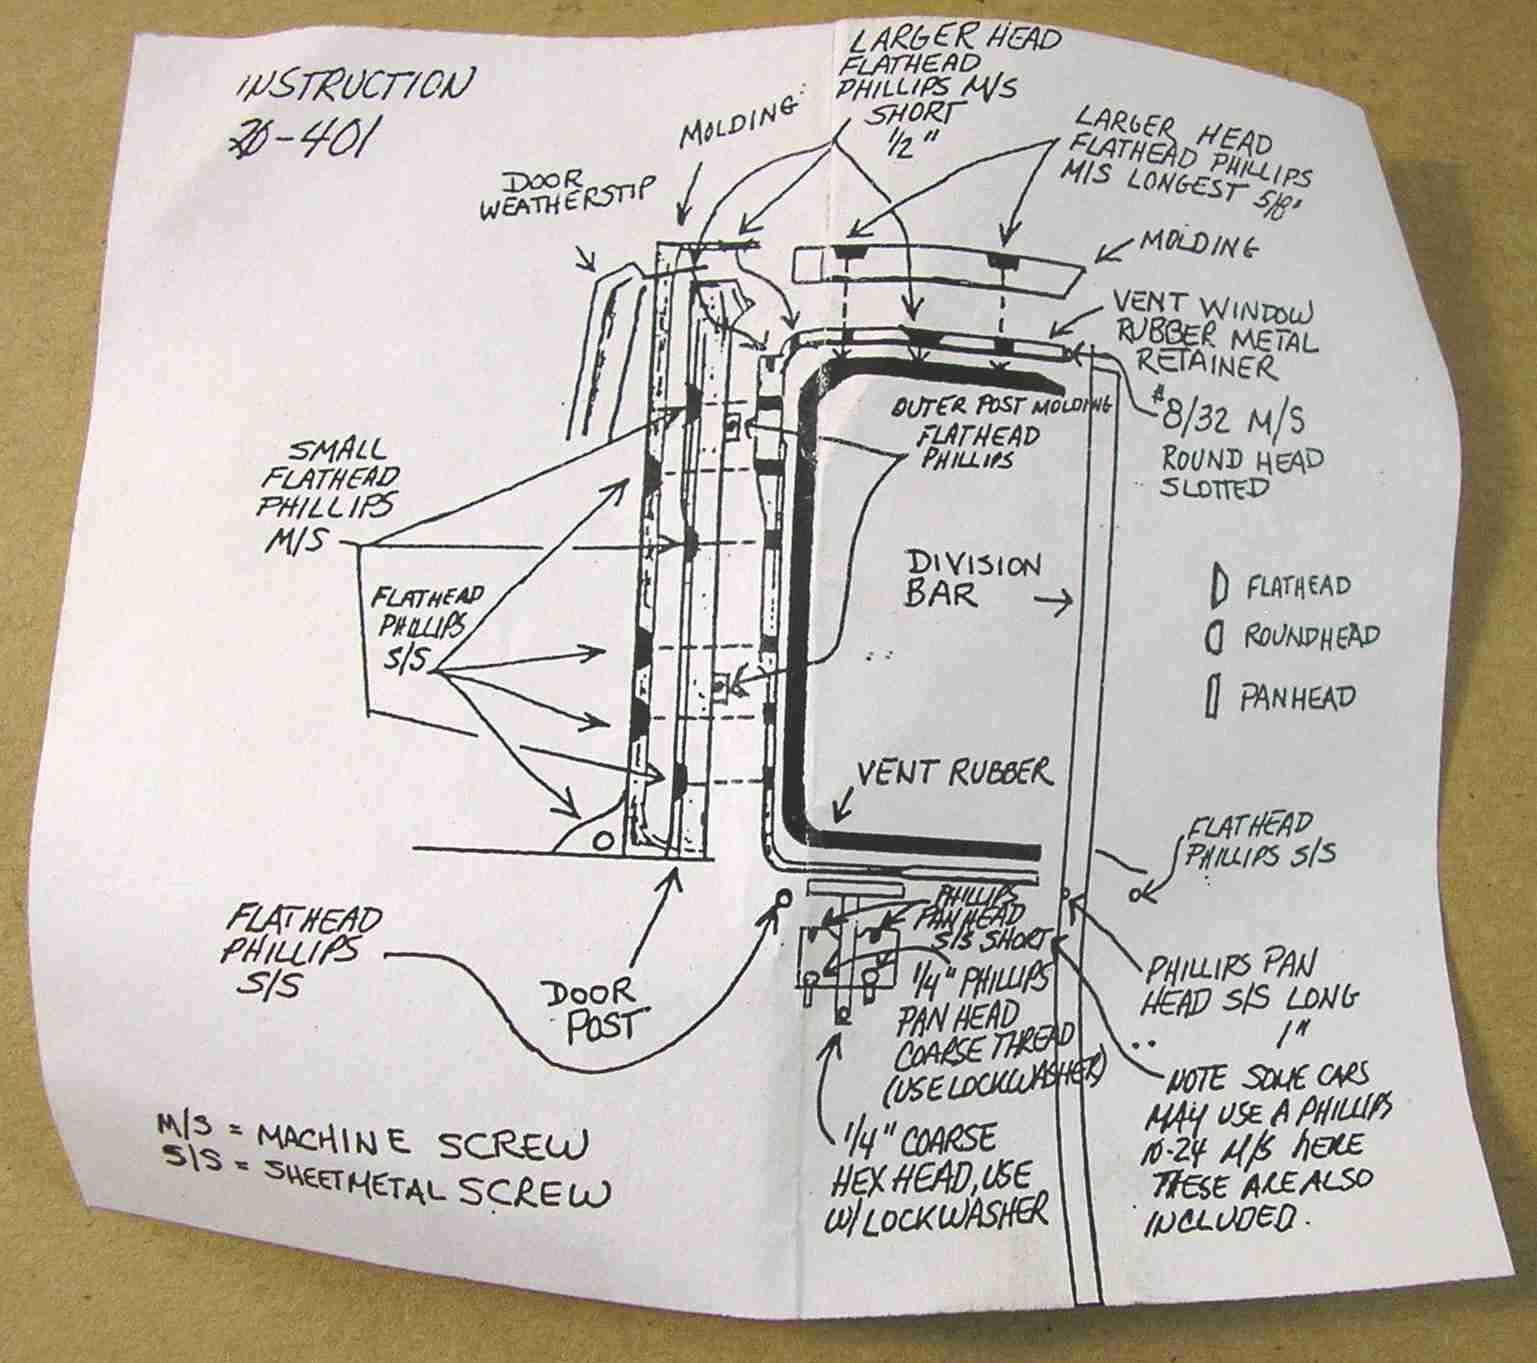 INSTRUCTION
20-401
LARGER HEAD
FLATHEAD
PHILLIPS M/S
SHORT
1/2"
MOLDING
DOOR
WEATHERSTIP
LARGER HEAD
FLATHEAD PHILLIPS
M/S LONGEST 5/8"
MOLDING
VENT WINDOW
RUBBER METAL
RETAINER
#8/32 M/S
ROUND HEAD
SLOTTED
OUTER POST MOLDING
FLATHEAD
PHILLIPS
SMALL
FLATHEAD
PHILLIPS
M/S
FLATHEAD
PHILLIPS
S/S
DIVISION
BAR
FLATHEAD
ROUNDHEAD
PANHEAD
VENT RUBBER
FLATHEAD
PHILLIPS S/S
FLATHEAD
PHILLIPS
S/S
DOOR
POST
PHILLIPS
PAN HEAD
S/S SHORT
1/4" PHILLIPS
PAN HEAD
COARSE THREAD
(USE LOCKWASHER)
PHILLIPS PAN
HEAD S/S LONG
1"
1/4" COARSE
HEX HEAD, USE
W/ LOCKWASHER
NOTE SOME CARS
MAY USE A PHILLIPS
10-24 M/S HERE
THESE ARE ALSO
INCLUDED.
M/S = MACHINE SCREW
S/S = SHEETMETAL SCREW